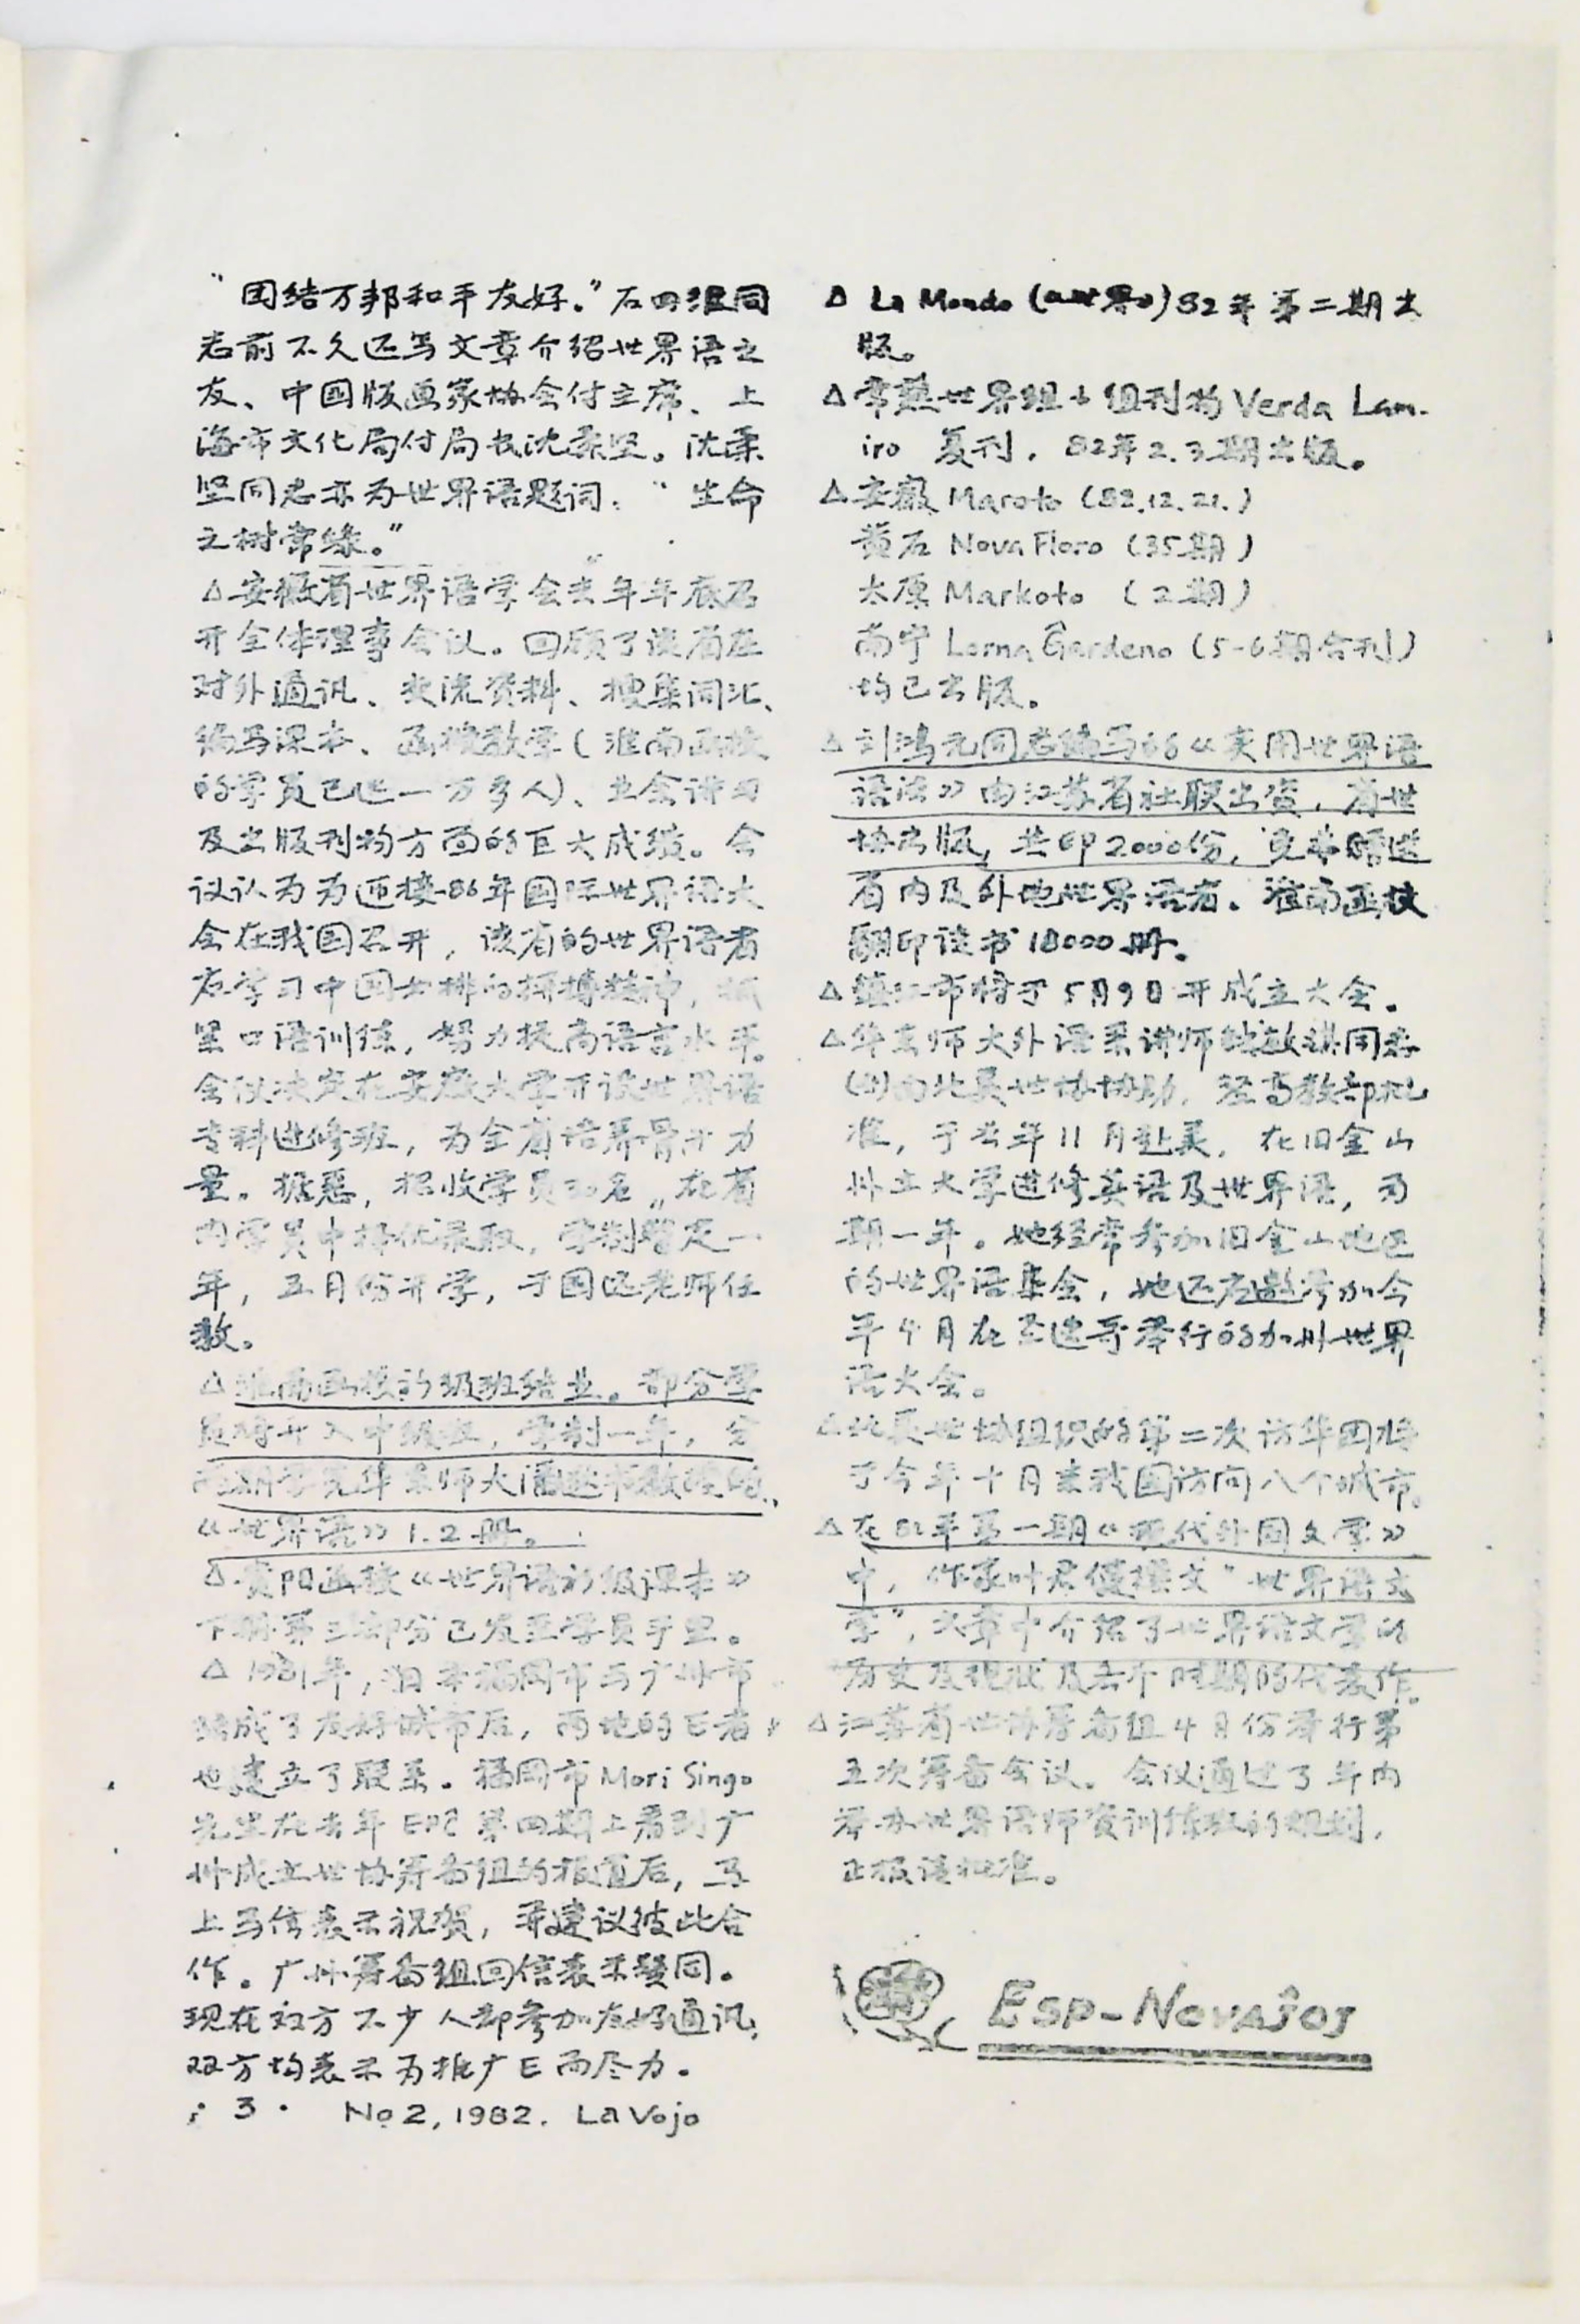 “团结万邦和平友好。”石四维同
志前不久还写文章介绍世界语之
友、中国版画家协会付主席、上
海市文化局付局长沈柔坚。沈柔
坚同志亦为世界语题词:“生命
之树常绿。”
△安徽省世界语学会去年年底召
开全体理事会议。回顾了该省在
对外通讯、交流资料、搜集词汇、
编写课本、函授教学(淮南函校
的学员已达一万多人)、业余讲习
及出版刊物方面的巨大成绩。会
议认为为迎接86年国际世界语大
会在我国召开,该省的世界语者
应学习中国女排的拼搏精神,抓
紧口语训练,努力提高语言水平。
会议决定在安徽大学开设世界语
专科进修班,为全省培养骨干力
量。据悉,招收学员30名,在省
内学员中择优录取,学制暂定一
年,五月份开学,于国还老师任
教。
△淮南函校初级班结业。部分学
员将升入中级班,学制一年,分
两期学完华东师大魏原枢教授的
《世界语》1.2册。
△贵阳函校《世界语初级课本》
下册第三部分已发至学员手里。
△1981年,日本福冈市与广州市
结成了友好城市后,两地的E者
也建立了联系。福冈市Mori Singo
先生在去年EPĈ第四期上看到广
州成立世协筹备组的报道后,马
上写信表示祝贺,并建议彼此合
作。广州筹备组回信表示赞同。
现在双方不少人都参加友好通讯,
双方均表示为推广E而尽力。
· 3 · No 2, 1982. La Vojo
△ La Mondo (《世界》)82年第二期出
版。
△常熟世界语小组刊物Verda Lam-
iro 复刊,82年2.3期出版。
△安徽 Maroto (82.12.21.)
黄石 Nova Floro (35期)
太原 Markoto (2期)
南宁 Lorna Ĝardeno (5-6期合刊)
均已出版。
△刘鸿元同志编写的《实用世界语
语法》由江苏省社联出资,省世
协出版,共印2000份,免费赠送
省内及外地世界语者。淮南函校
翻印该书18000册。
△镇江市将于5月9日开成立大会。
△华东师大外语系讲师敏琪同志
由北美世协协助,经高教部批
准,于去年11月赴美,在旧金山
州立大学进修英语及世界语,为
期一年。她经常参加旧金山地区
的世界语集会,她还应邀参加今
年4月在圣迭哥举行的加州世界
语大会。
△北美世协组织的第二次访华团将
于今年十月来我国访问八个城市。
△在82年第一期《现代外国文学》
中,作家叶君健撰文“世界语文
学”,文章中介绍了世界语文学的
历史及现状及各个时期的代表作。
△江苏省世协筹备组4月份举行第
五次筹备会议。会议通过了年内
举办世界语师资训练班的规划,
正报请批准。
ESP-NOVAĴOJ